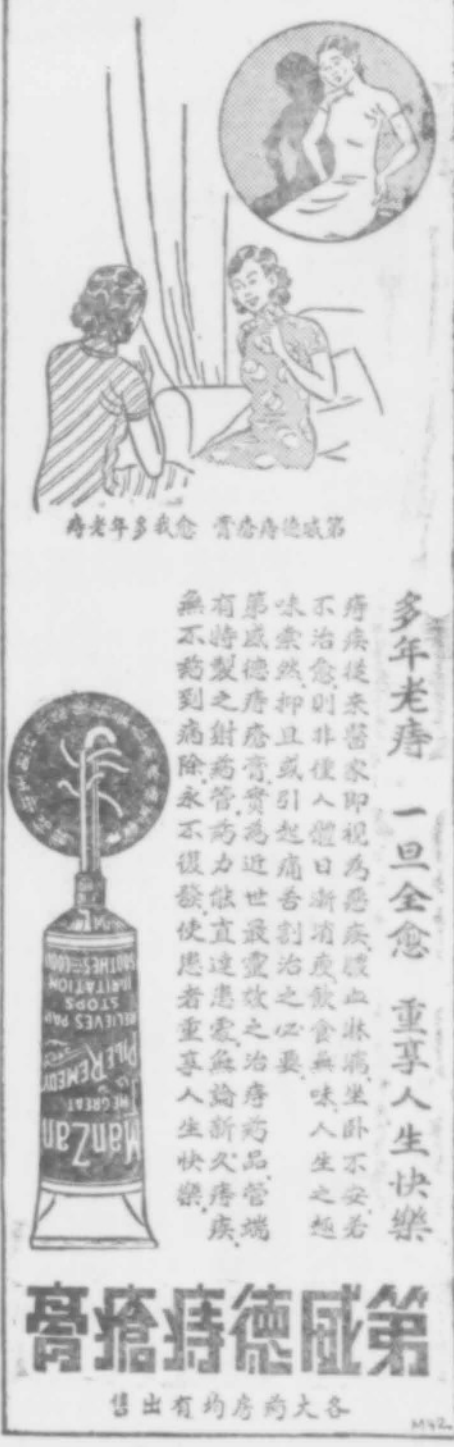 第威德痔瘡膏 愈我多年老痔
多年老痔 一旦全愈 重享人生快樂
痔疾從來醫家即視為惡疾,膿血淋漓,坐卧不安,若
不治愈,則非僅人體日漸消瘦,飲食無味,人生之趣
味索然,抑且或引起痛苦割治之必要.
第威德痔瘡膏,實為近世最靈效之治痔药品,管端
有特製之射药管,药力能直達患處,無論新久痔疾,
無不药到病除,永不復發,使患者重享人生快樂.
ManZan
THE GREAT
PILE REMEDY
RELIEVES PAIN
STOPS
IRRITATION
SOOTHES-COOLS
第威德痔瘡膏
各大药房均有出售
M42.